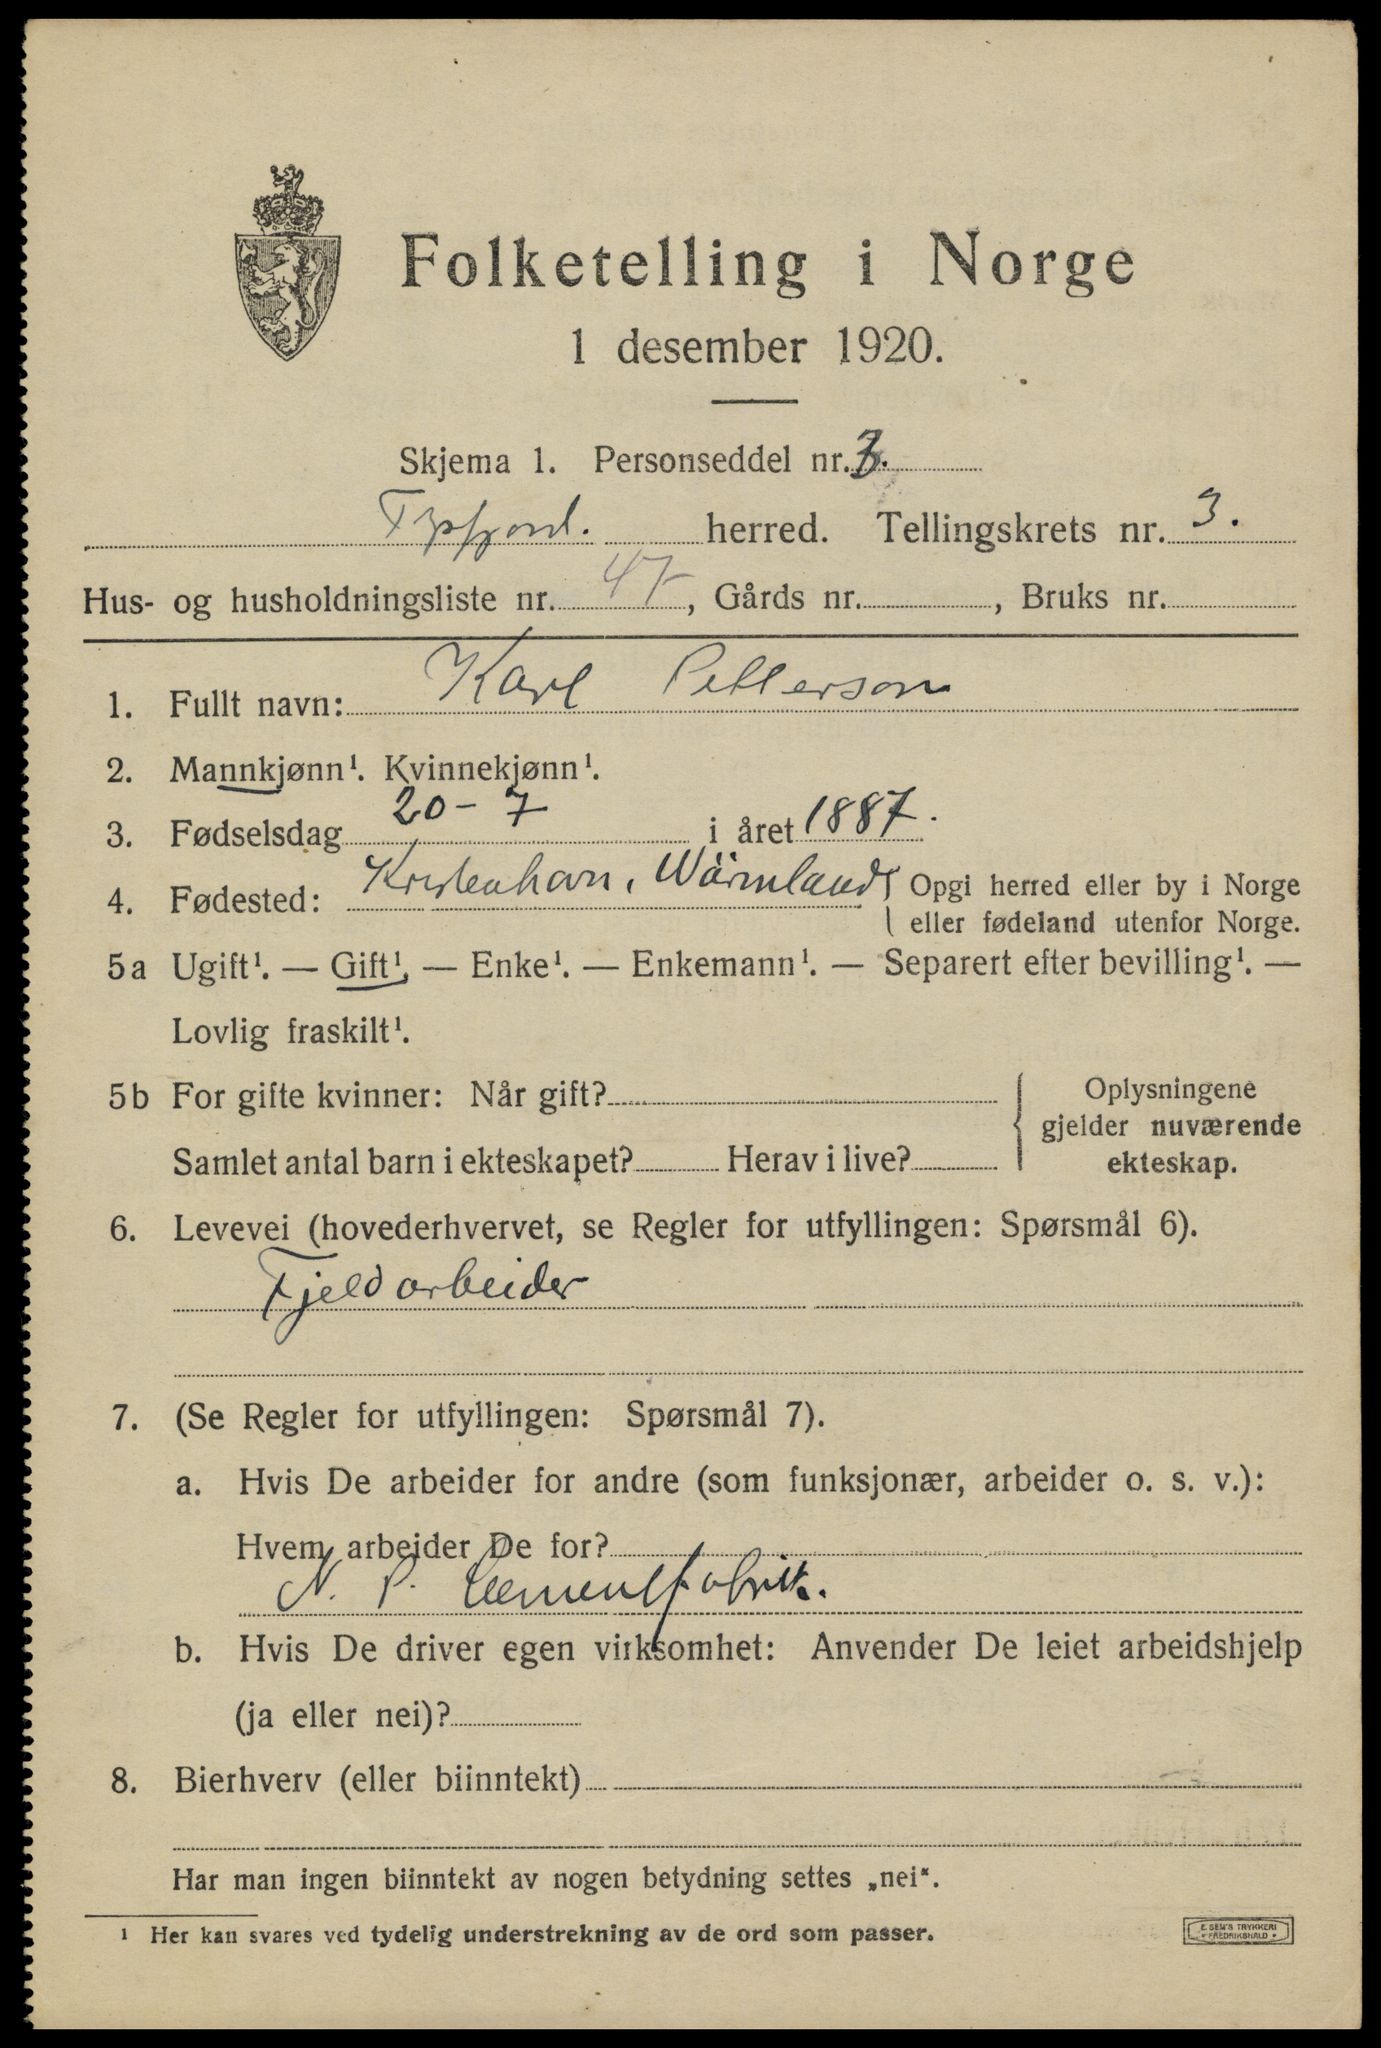 Folketelling i Norge
1 desember 1920.
Skjema 1. Personseddel nr. 3.
Tysfjord. herred. Tellingskrets nr. 3.
Hus- og husholdningsliste nr. 47, Gårds nr. , Bruks nr.
1. Fullt navn: Karl Petterson
2. Mannkjønn¹. Kvinnekjønn¹.
3. Fødselsdag 20-7 i året 1887.
4. Fødested: Kristenhavn, Wärmland { Opgi herred eller by i Norge
eller fødeland utenfor Norge.
5a Ugift¹. — Gift¹, — Enke¹. — Enkemann¹. — Separert efter bevilling¹. —
Lovlig fraskilt¹.
5b For gifte kvinner: Når gift? { Oplysningene
gjelder nuværende
Samlet antal barn i ekteskapet? Herav i live? ekteskap.
6. Levevei (hovederhvervet, se Regler for utfyllingen: Spørsmål 6).
Fjeldarbeider
7. (Se Regler for utfyllingen: Spørsmål 7).
a. Hvis De arbeider for andre (som funksjonær, arbeider o. s. v.):
Hvem arbeider De for?
N. P. Cementfabrik.
b. Hvis De driver egen virksomhet: Anvender De leiet arbeidshjelp
(ja eller nei)?
8. Bierhverv (eller biinntekt)
Har man ingen biinntekt av nogen betydning settes „nei“.
¹ Her kan svares ved tydelig understrekning av de ord som passer.
E. SEM'S TRYKKERI
• FREDRIKSHALD •